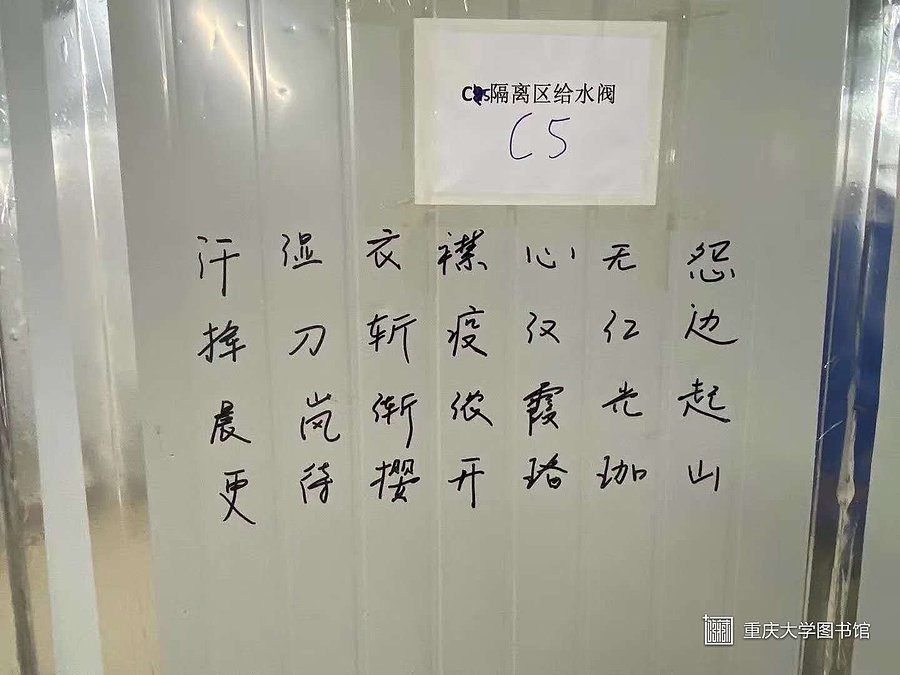 C5隔离区给水阀
C5
汗湿衣襟心无怨
挥刀斩疫汉仁边
晨岚渐浓霞光起
更待撄开珞珈山
重庆大学图书馆